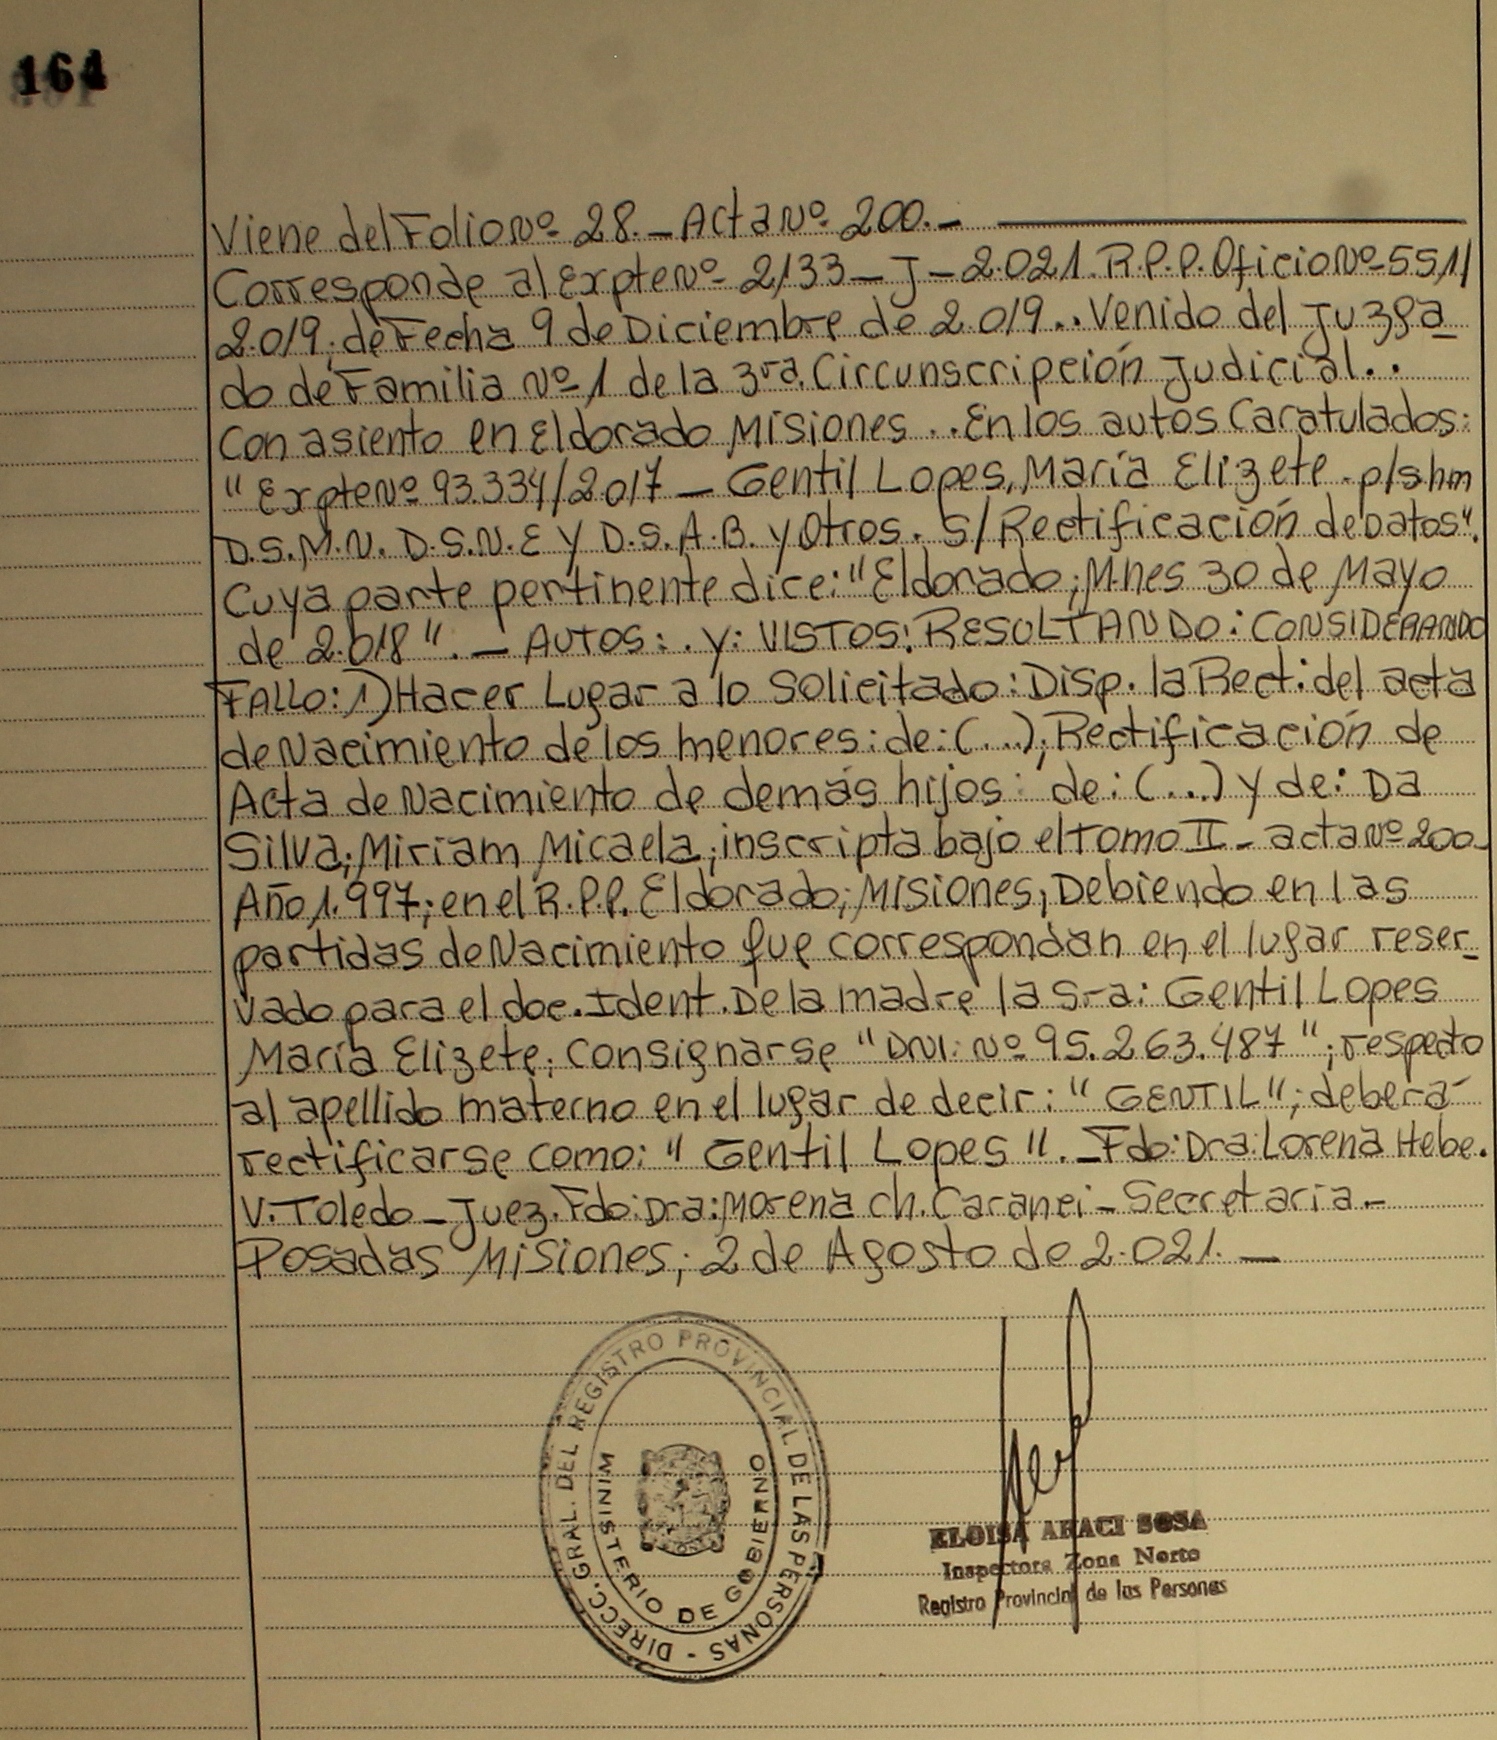 164
Viene del Folio Nº 28._ Acta Nº 200._
Corresponde al Expte Nº 2133_J_2.021. R.P.P. Oficio Nº 551/
2.019; de Fecha 9 de Diciembre de 2.019.. Venido del Juzga
do de Familia Nº 1 de la 3ra. Circunscripción Judicial..
Con asiento en Eldorado Misiones... En los autos Caratulados:
"Expte Nº 93.334/2.017 _ Gentil Lopes, María Elizete. p/s.hm
D.S.M.N. D.S.N.E Y D.S.A.B. y Otros. S/ Rectificación de Datos".
Cuya parte pertinente dice: "Eldorado; M.nes 30 de Mayo
de 2.018". _ AUTOS: . Y: VISTOS: RESULTANDO: CONSIDERANDO
FALLO: 1) Hacer Lugar a lo Solicitado: Disp. la Rect: del acta
de Nacimiento de los menores: de: (...); Rectificación de
Acta de Nacimiento de demás hijos: de: (...) y de: Da
Silva; Miriam Micaela; inscripta bajo el Tomo II_ acta Nº 200_
Año 1.997; en el R.P.P. Eldorado; Misiones; Debiendo en las
partidas de Nacimiento que correspondan en el lugar reser_
vado para el doc. Ident. De la madre la Sra: Gentil Lopes
María Elizete; Consignarse "DNI: Nº 95.263.487"; respecto
al apellido materno en el lugar de decir: "GENTIL"; deberá
rectificarse como: "Gentil Lopes". _Fdo: Dra: Lorena Hebe.
V. Toledo _ Juez. Fdo: Dra: Morena Ch. Caranei _ Secretaria._
Posadas Misiones; 2 de Agosto de 2.021. _
DIRECC. GRAL. DEL REGISTRO PROVINCIAL DE LAS PERSONAS -
MINISTERIO DE GOBIERNO
ELOISA ARACI SOSA
Inspectora Zona Norte
Registro Provincial de las Personas